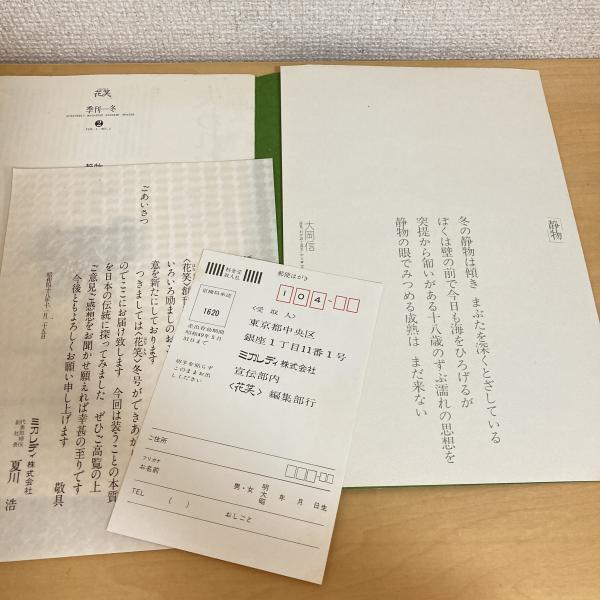 花笑
季刊―冬
2
ごあいさつ
〈花笑〉創刊
いろいろ励ましのお
意を新たにしております
つきましては〈花笑〉冬号ができあが
のでここにお届け致します 今回は装うことの本質
を日本の伝統に探ってみました ぜひご高覧の上
ご意見ご感想をお聞かせ願えれば幸甚の至りです
今後ともよろしくお願い申し上げます
敬具
ミカレディ株式会社
夏川 浩
静物
冬の静物は傾き まぶたを深くとざしている
ぼくは壁の前で今日も海をひろげるが
突堤から匂いがある十八歳のずぶ濡れの思想を
静物の眼でみつめる成熟は まだ来ない
大岡信
郵便はがき
104-
料金受取人払
京橋局承認
1620
差出有効期間
昭和49年5月
31日まで
切手を貼らず
このままお出
しください
〈受取人〉
東京都中央区
銀座1丁目11番1号
ミカレディ株式会社
宣伝部内
〈花笑〉編集部行
ご住所
フリガナ
お名前
男・女
明
大
昭
年 月 日生
TEL ( )
おしごと